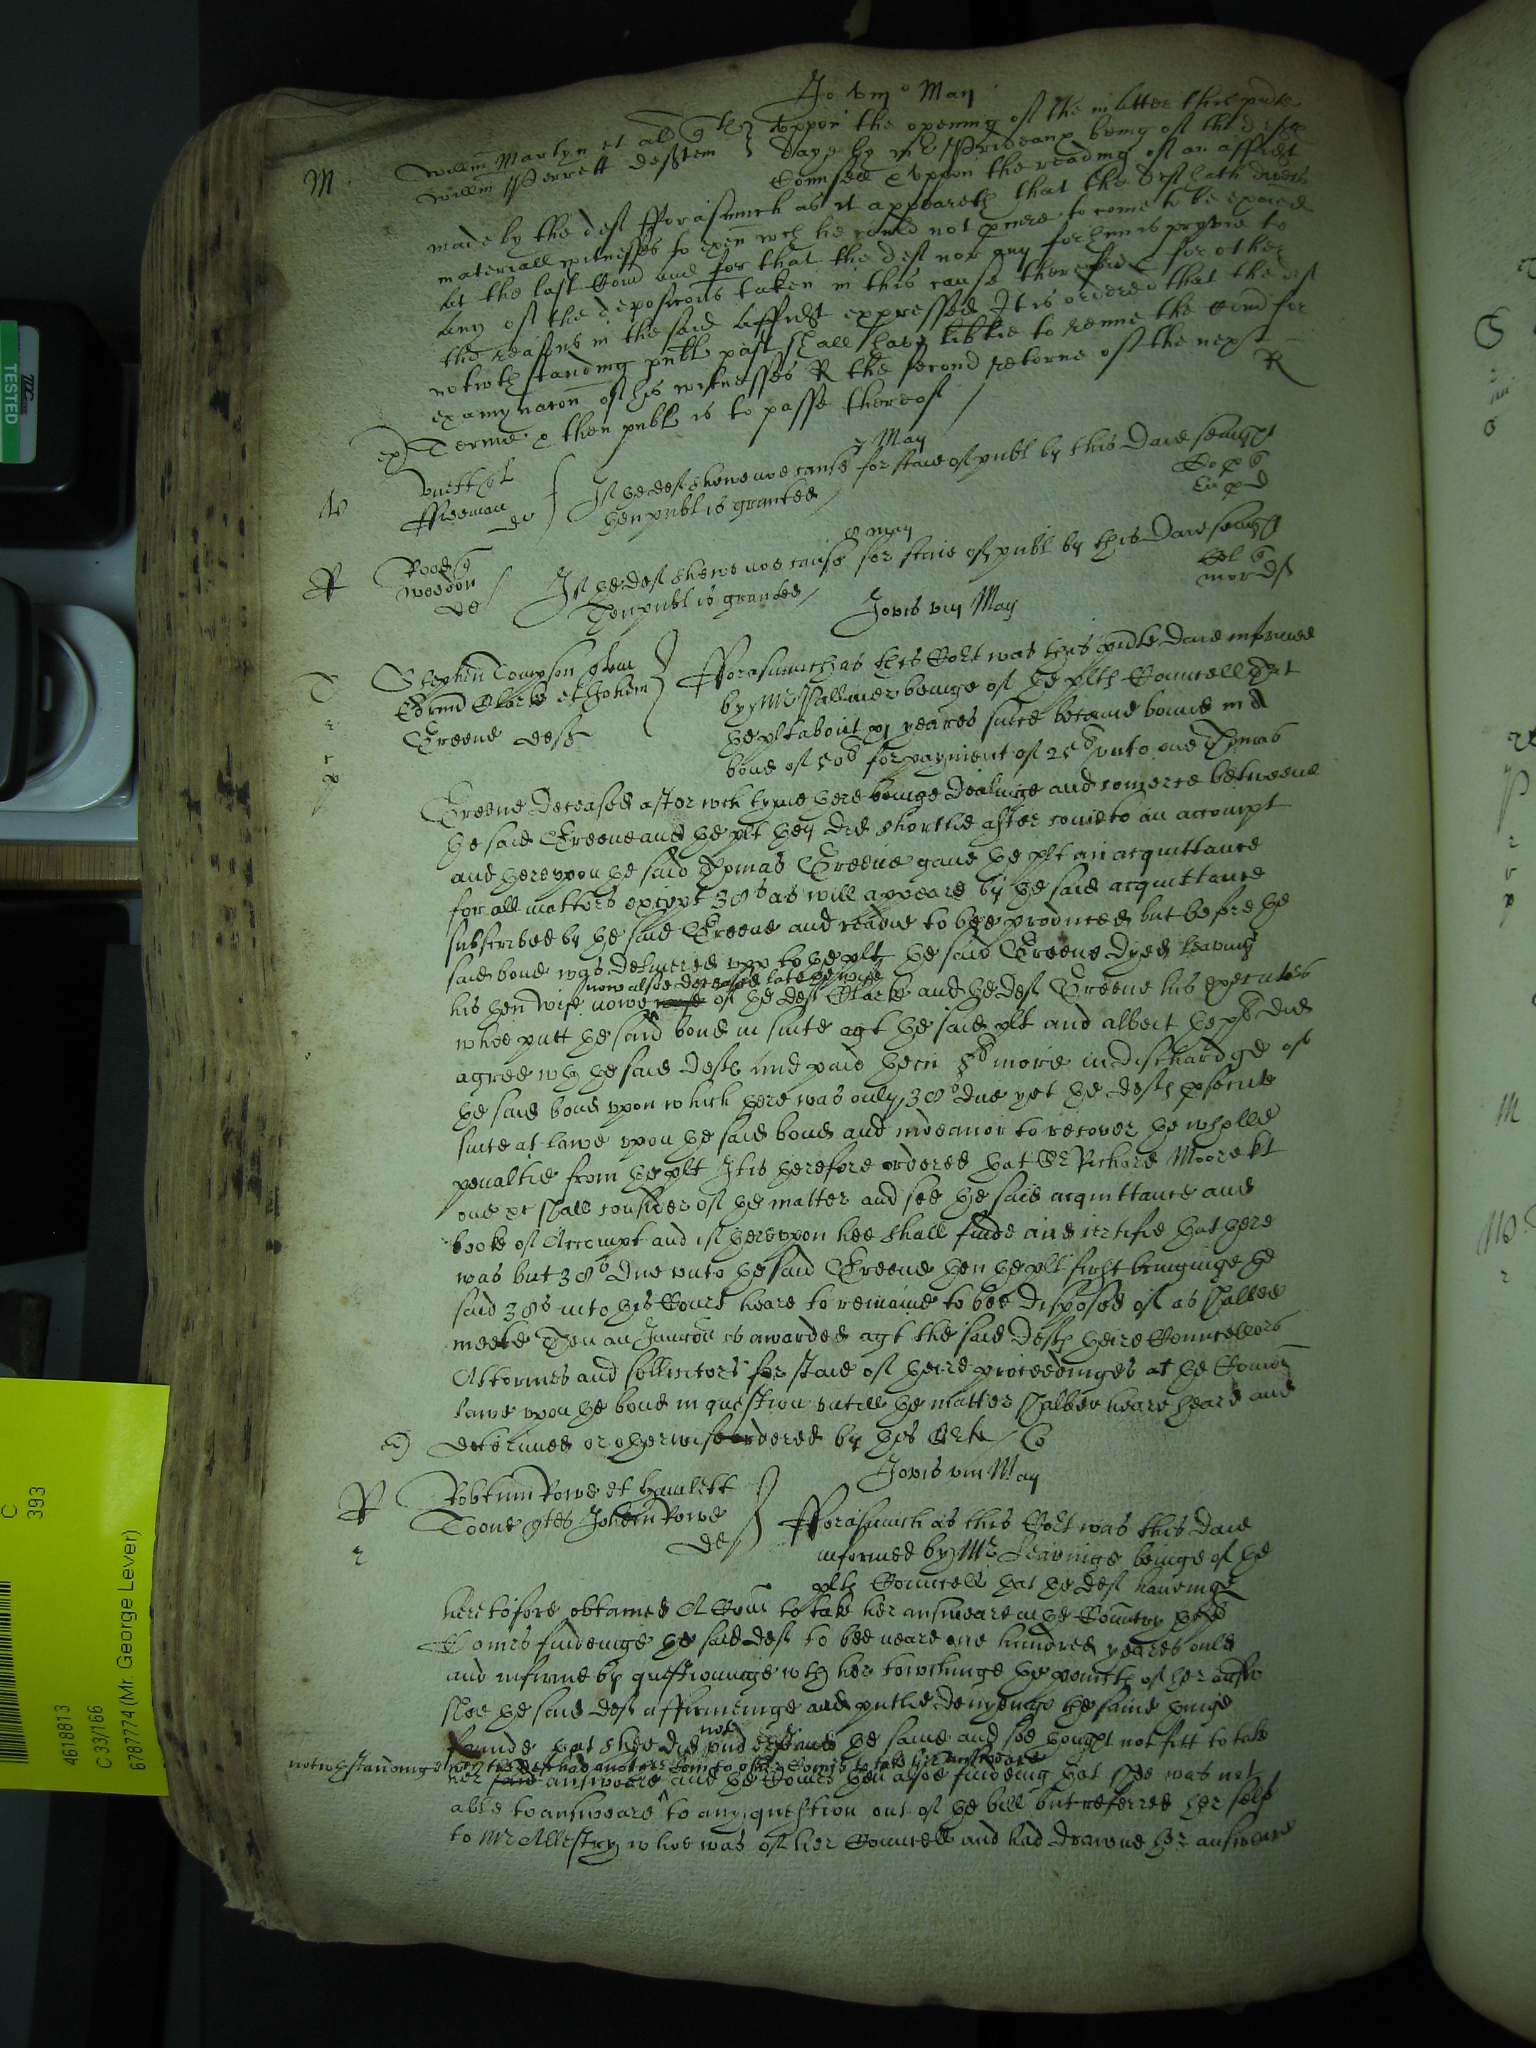 Jo viijo May
M
Willm Martyn et al quer
Willm Perrett deften
Uppon the opening of the matter this pnte
daye by Mr Prideaux being of the defts
Counsell & uppon the reading of an affidt
made by the deft fforasmuch as it appeareth that the deft hath divers
materiall witnesses to exen wch he could not to come to be exaied
by the last Com and for that the deft nor any for him is pryvie to
any of the deposicons taken in this cause therefore & for other
the reasons in the said affidt expressed It is ordered that the deft
notwth standing publ past shall have libtie to renue the Com for
examynacon of his witnesses R the second retorne of the next
Terme & then publ is to passe thereof
R
ex
7 May
ffreeman
de
If the deft shewe noe cause for staie of publ by this daie sevennight
then publ is granted
8 may
R
Weedon
de
If the deft shewe noe cause for staie of publ by this Daie
Then publ is granted
Jovis viij May
T
Stephen Tompson quer
Edmund Clarke et Johem
Greene defts
fforasmuch as this Court was this pnte Daie informed
by Mr Pallmer beinge of the plts Councell that
the plt about xj yeares since became bound in a
bond of 50l for payment of 25l unto one Thomas
Greene Deceased after wch tyme there beinge Dealinge and comerce betweene
the said Greene and the plt they did shortlie after come to an accompt
and thereupon the said Thomas Greene gave the plt an acquittance
for all matters except 38s as will appeare by the said acquittance
subscribed by the said Greene and readie to bee produced but before the
said bond was delivered upp to the plt the said Greene Dyed leaving
now alsoe deceased late the wife
his then wife nowe of the deft Clarke and the deft Greene his executors
whoe putt the said bond in suite agt the said plt and albeit the plt did
agree wth the said defts and paid them 8l more in dischardge of
the said bond upon which there was only 38s due yet the defts psecute
suite at lawe upon the said bond and indeavor to recover the wholle
penaltie from the plt It is therefore ordered that Sr Richard Moore kt
one &c shall consider of the matter and see the said acquittance and
booke of Accompt and if thereupon hee shall finde and certifie that there
was but 38s due unto the said Greene then the plt first bringinge the
said 38s into this Court heare to remaine to bee disposed of as shalbee
meete Then an Iniuncon is awarded agt the said defts theire Councellors
Attornies and sollicitors for staie of theire proceedinges at the Comon
lawe upon the bond in question untill the matter shalbee heare heard and
determined or otherwise ordered by this Court
ex
Jovis viij May
R
Robtum Rowe et Hamlett
Toone quer Johem Rowe
def
fforasmuch as this Court was this Daie
informed by Mr beinge of the
plts Councell that the deft havinge
heretofore obtained A Com to take her answeare in the Countrie the
Comrs findeinge the said deft to bee neare one hundred yeares ould
and infirme by questioninge wth her towchinge the pointes of her answ
shee the said deft affirminge and the same thinge
founde that shee did not understand the same and soe thought not fitt to take
notwthstandinge the deft had another Com to other Comrs to take her answeare
her said answeare and the Comrs then alsoe findeing that shee was not
able to answeare to any question out of the bill but referred her selfe
to Mr Allestry whoe was of her Councell and had drawne her answeare
TESTED
C
393
4618813
C 33/166
6787774 (Mr. George Lever)